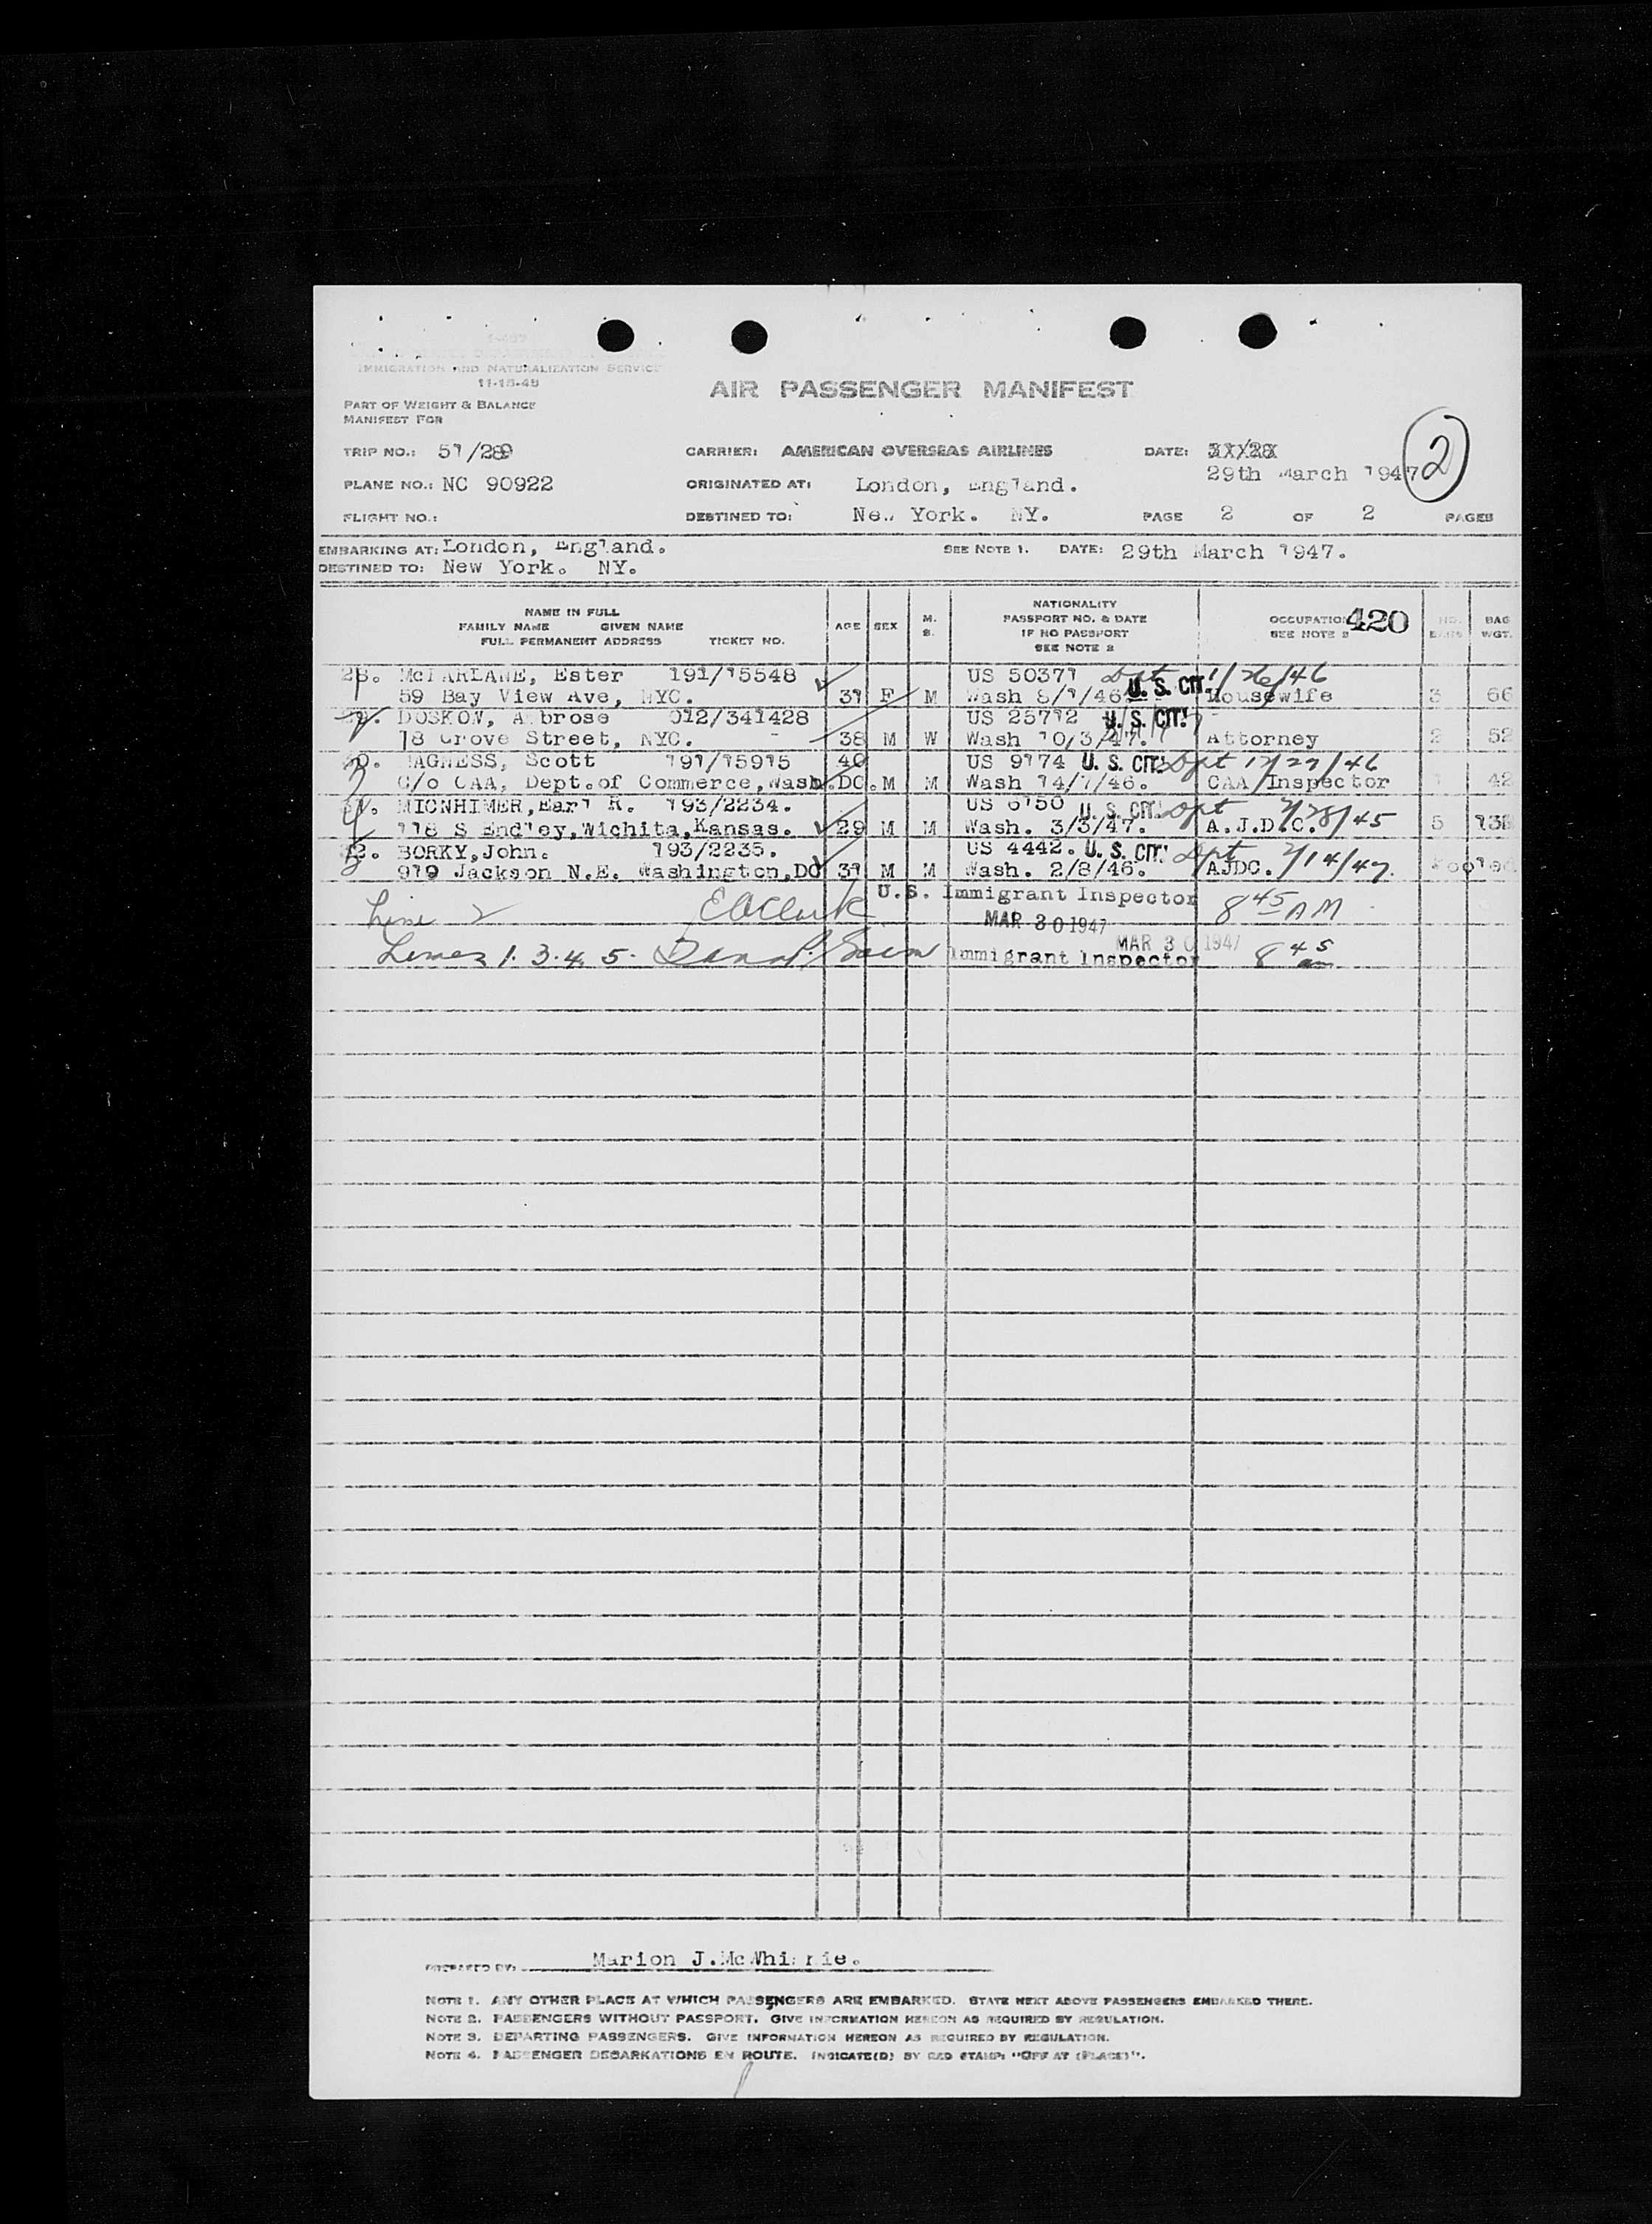 IMMIGRATION AND NATURALIZATION SERVICE
11-15-45
PART OF WEIGHT & BALANCE
MANIFEST FOR
AIR PASSENGER MANIFEST
TRIP NO.: 51/289 CARRIER: AMERICAN OVERSEAS AIRLINES DATE:
29th March 1947 2
PLANE NO.: NC 90922 ORIGINATED AT: London, England.
FLIGHT NO.: DESTINED TO: New York. NY. PAGE 2 OF 2 PAGES
EMBARKING AT: London, England. SEE NOTE 1. DATE: 29th March 1947.
DESTINED TO: New York. NY.
NAME IN FULL
FAMILY NAME GIVEN NAME
FULL PERMANENT ADDRESS TICKET NO.
AGE SEX M. S.
NATIONALITY
PASSPORT NO. & DATE
IF NO PASSPORT
SEE NOTE 2
OCCUPATION 420
SEE NOTE 2
BAG WGT.
28. McFARLANE, Ester 191/15548 US 50371 Dpt 1/26/46
59 Bay View Ave, NYC. 31 F M Wash 8/1/46 U. S. CIT. Housewife 3 66
DOSKOW, Ambrose 012/341428 US 25712 U. S. CIT.
18 Grove Street, NYC. 38 M W Wash 10/3/47. Attorney 2 52
MAGNESS, Scott 191/15915 40 US 9174 U. S. CIT. Dpt 12/27/46
C/o CAA, Dept.of Commerce,Wash.DC. M M Wash 14/7/46. CAA Inspector 1 42
MIONHIMER,Earl R. 193/2234. US 6150 U. S. CIT. Dpt 7/28/45
118 S Endley,Wichita,Kansas. 29 M M Wash. 3/3/47. A.J.D.C. 5 138
BORKY,John. 193/2235. US 4442. U. S. CIT. Dpt 2/14/47.
919 Jackson N.E. Washington,DC 31 M M Wash. 2/8/46. AJDC. Pooled
Line 2 E A Clark U.S. Immigrant Inspector 8 45 AM
MAR 30 1947
Lines 1. 3. 4. 5. Immigrant Inspector MAR 30 1947 8 45 am
PREPARED BY: Marion J.McWhinnie.
NOTE 1. ANY OTHER PLACE AT WHICH PASSENGERS ARE EMBARKED. STATE NEXT ABOVE PASSENGERS EMBARKED THERE.
NOTE 2. PASSENGERS WITHOUT PASSPORT. GIVE INFORMATION HEREON AS REQUIRED BY REGULATION.
NOTE 3. DEPARTING PASSENGERS. GIVE INFORMATION HEREON AS REQUIRED BY REGULATION.
NOTE 4. PASSENGER DEBARKATIONS EN ROUTE. INDICATE(D) BY RED STAMP: "OFF AT (PLACE)".